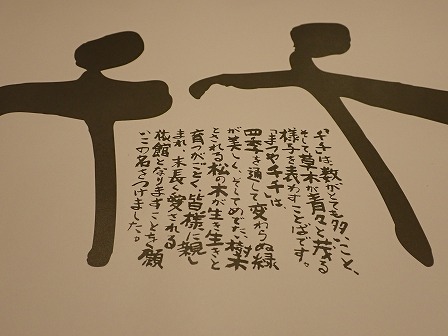 千千
「千千」は、数がとても多いこと、
そして草木が青々と茂る
様子を表わすことばです。
「まつや千千」は、
四季を通して変わらぬ緑
が美しく、そしてめでたい樹木
とされる松の木が生き生きと
育つがごとく、皆様に親し
まれ、末長く愛される
旅館となりますことを願
いこの名をつけました。